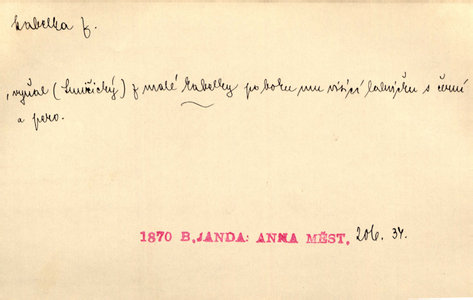 kabelka f.
, vyňal (Smiřický) z malé kabelky po boku mu visící lahvičku s černí
a pero.
1870 B. JANDA: ANNA MĚST. 206. 34.